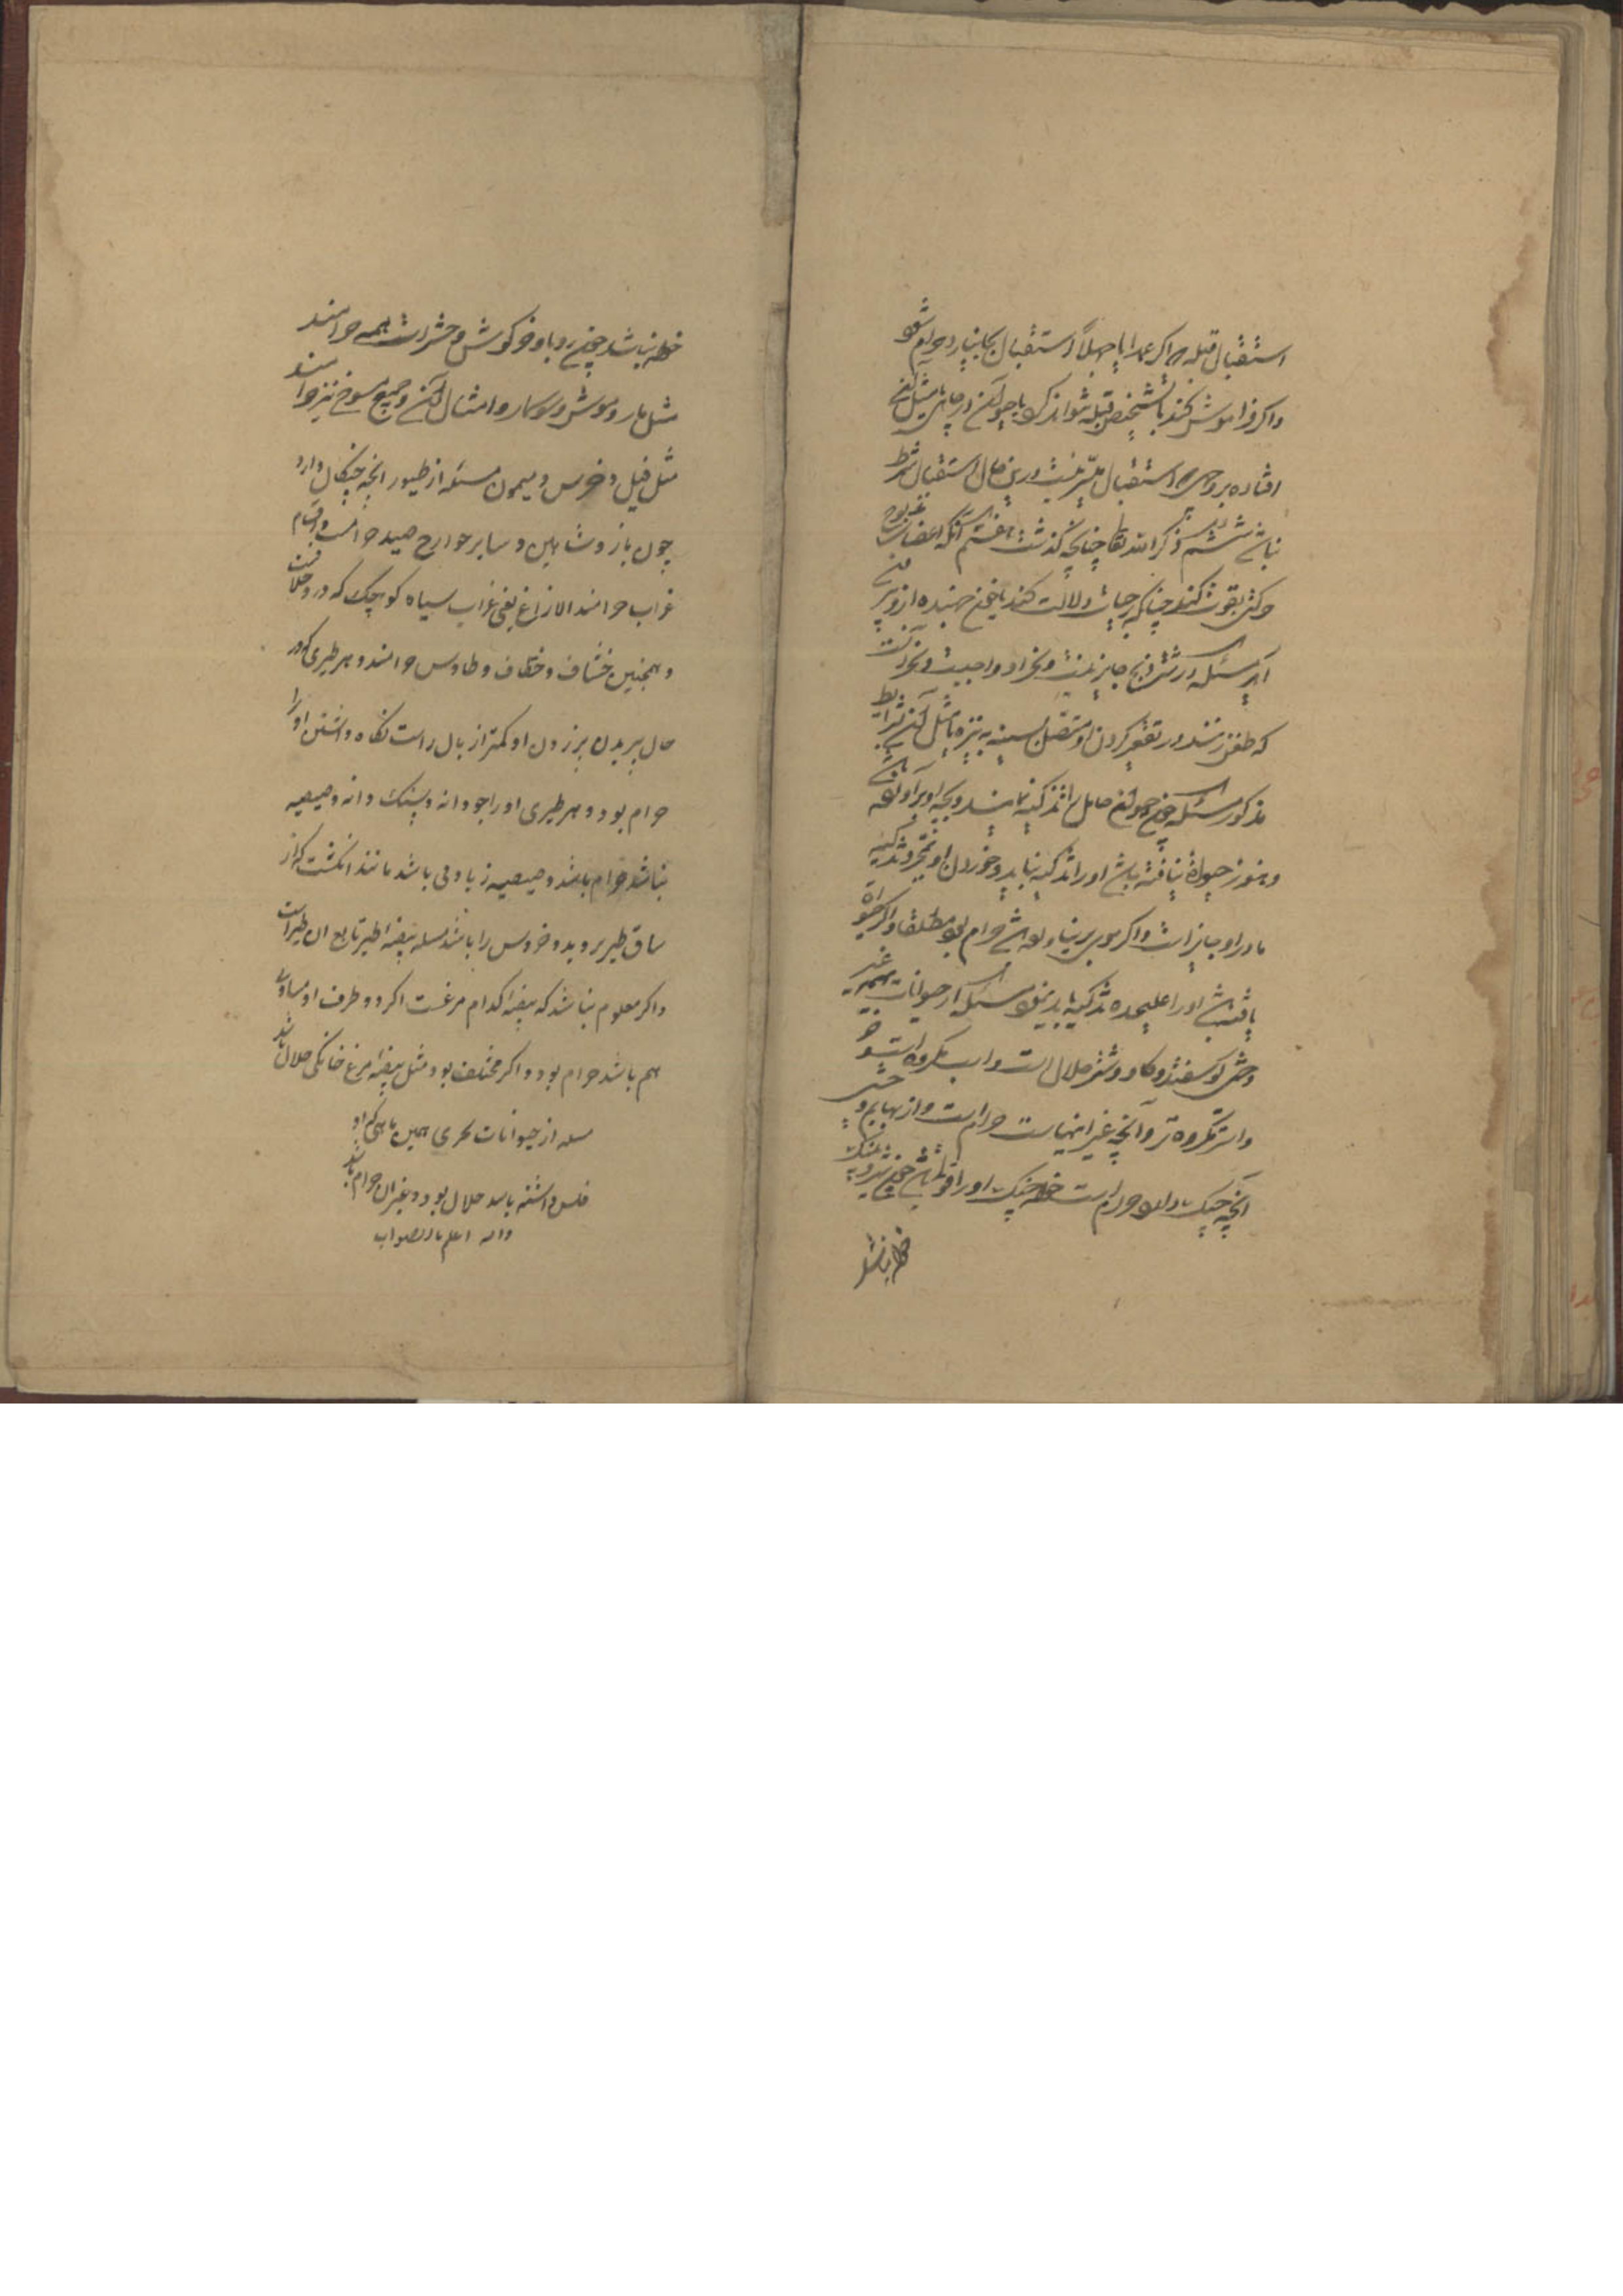 استقبال قبله و اکر عمدا یا جهلاً استقبال بجا نیارد حرام شود
و اکر فراموش کند یا تشخیص قبله نتواند کرد یا حیوان در چاهی یا مثل آن
افتاده بر وجهی که استقبال میسر نیست درین حال استقبال شرط
نباشد ششم ذکر الله تعالی چنانچه گذشت هفتم آنکه اعضای مذبوح
حرکتی بقوت کند چنانکه بر حیات دلالت کند یا خون جهنده ازو بیرون
آید مسئله در شتر ذبح جایز نیست و نحر او واجبست و نحر آنست
که طعن زنند در تقعیر کردن او متصل بسینه به نیزه یا مثل آن بشرایط
مذکوره مسئله چون حیوان حامل را تذکیه نمایند و بچه او برآورده باشد
و هنوز حیوة نیافته باشد او را تذکیه نباید و خوردن او بمجرد تذکیه
مادر او جایز است و اکر موی بر نیاورده باشد حرام بود مطلقا و اکر حیوة
یافته باشد او را علیحده تذکیه باید نمود مسئله از حیوانات بهیمه غیر
وحشی کوسفند و کاو و شتر حلال است و اسب مکروه است و خر
و استر مکروه تر و آنچه غیر اینهاست حرام است و از بهایم وحشی
آنچه چنک دارد حرام است خواه چنک او را قوتی باشد چون شیر و پلنک
خواه نباشد
خواه نباشد چون روباه و خرکوش و حشرات همه حرامند
مثل مار و موش و سوسمار و امثال آن و جمیع مسوخ نیز حرامند
مثل فیل و خرس و میمون مسئله از طیور انچه چنکال دارد
چون باز و شاهین و سایر جوارح صید حرامست و اقسام
غراب حرامند الا زاغ یعنی غراب سیاه کوچک که درو خلافست
و همچنین خشاف و خطاف و طاوس حرامند و هر طیری که در
حال پریدن پر زدن او کمتر از بال راست نکاه داشتن او را
حرام بود و هر طیری او را جودانه و سنک دانه و صیصیه
نباشد حرام باشد و صیصیه زیادتی باشد مانند انکشت که از
ساق طیر بروید و خروس را باشد مسله بیضه طیر تابع ان طیر است
و اکر معلوم نباشد که بیضه کدام مرغست اکر دو طرف او مساوی
هم باشد حرام بود و اکر مختلف بود مثل بیضه مرغ خانکی حلال باشد
مسله از حیوانات بحری همین ماهی که او
فلس داشته باشد حلال بود و غیر ان حرام باشد
والله اعلم بالصواب